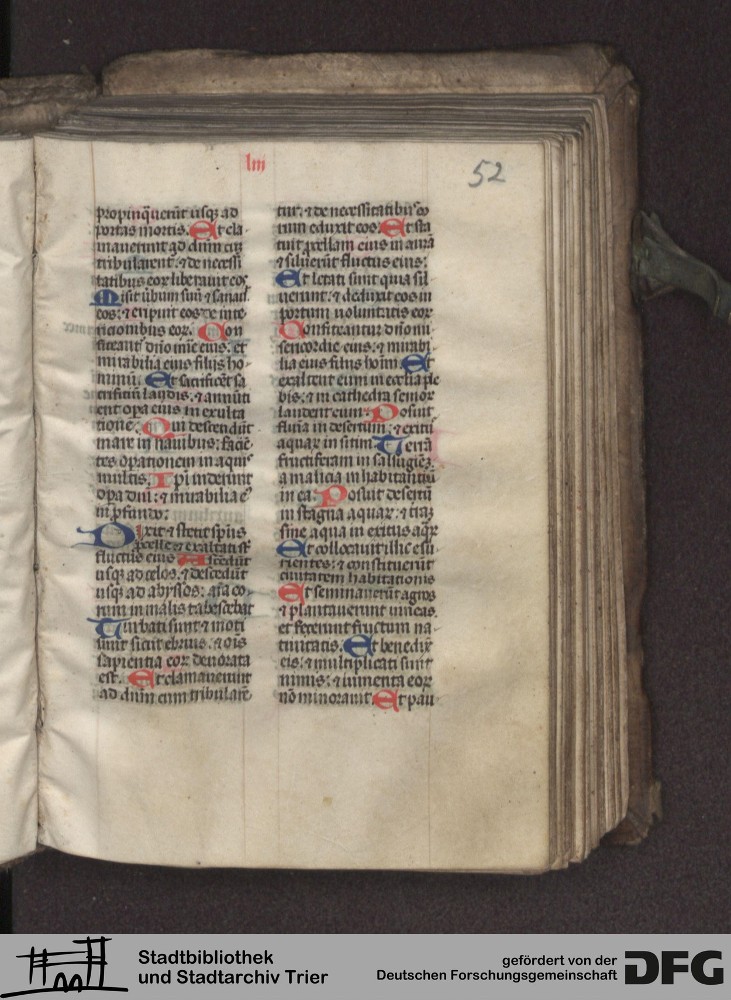 lııı
52
propinq̄uerūt usqꝫ ad
portas mortis. Et cla
mauerunt ad dnm cū
tribularent᷑: ⁊ de necessi
tatibus eoꝝ liberauit eos
Misit ūbum suū ⁊ sanau̅
eos: ⁊ eripuit eos de inte
ricionibus eoꝝ. Con
fiteant᷑ dn̄o mīe eius: et
mirabilia eius filijs ho
minū. Et sacrificēt sa
crificiū laudis: ⁊ annūti
ent oṗa eius in exulta
tione. Qui descendūt
mare in nauibus: faciē
tes oꝑationem in aquis
multis. Ipi̅ uiderunt
oꝑa dn̄i: ⁊ mirabilia eꝰ
in ꝓfundo:
Dixit ⁊ stetit spūs
ꝓcelle ⁊ exaltati st̄
fluctus eius Ascēdūt
usqꝫ ad celos: ⁊ descēdūt
usqꝫ ad abyssos: aīa eo
rum in malis tabescebat
Turbati sunt ⁊ moti
sunt sicut ebrius: ⁊ oīs
sapientia eoꝝ deuorata
est. Et clamauerunt
ad dnm cum tribularē
tur: ⁊ de necessitatibus eo
rum eduxit eos. Et sta
tuit ꝓcellam eius in aurā
⁊ siluerūt fluctus eius:
Et letati sunt quia sil
uerunt: ⁊ deduxit eos in
portum uoluntatis eoꝝ
Confiteantur dn̄o mi
sericordie eius: ⁊ mirabi
lia eius filijs hoīm Et
exaltent eum in eccl̄ia ple
bis: ⁊ in cathedra senioꝝ
laudent eum: Posuit
flu̅ia in desertum: ⁊ exitꝰ
aquaꝝ in sitim Terrā
fructiferam in salsuginē:
a malicia inhabitantiū
in ea: Posuit desertū
in stagna aquaꝝ: ⁊ t̅rā
sine aqua in exitus aqꝝ
Et collocauit illic esu
rientes: ⁊ constituerūt
ciuitatem habitationis
Et seminauerūt agros
⁊ plantauerunt uineas.
et fecerunt fructum na
tiuitatis. Et benedix̄
eis: ⁊ multiplicati sunt
nimis: ⁊ iumenta eoꝝ
nō minorauit Et pau
Stadtbibliothek
und Stadtarchiv Trier
gefördert von der
Deutschen Forschungsgemeinschaft
DFG